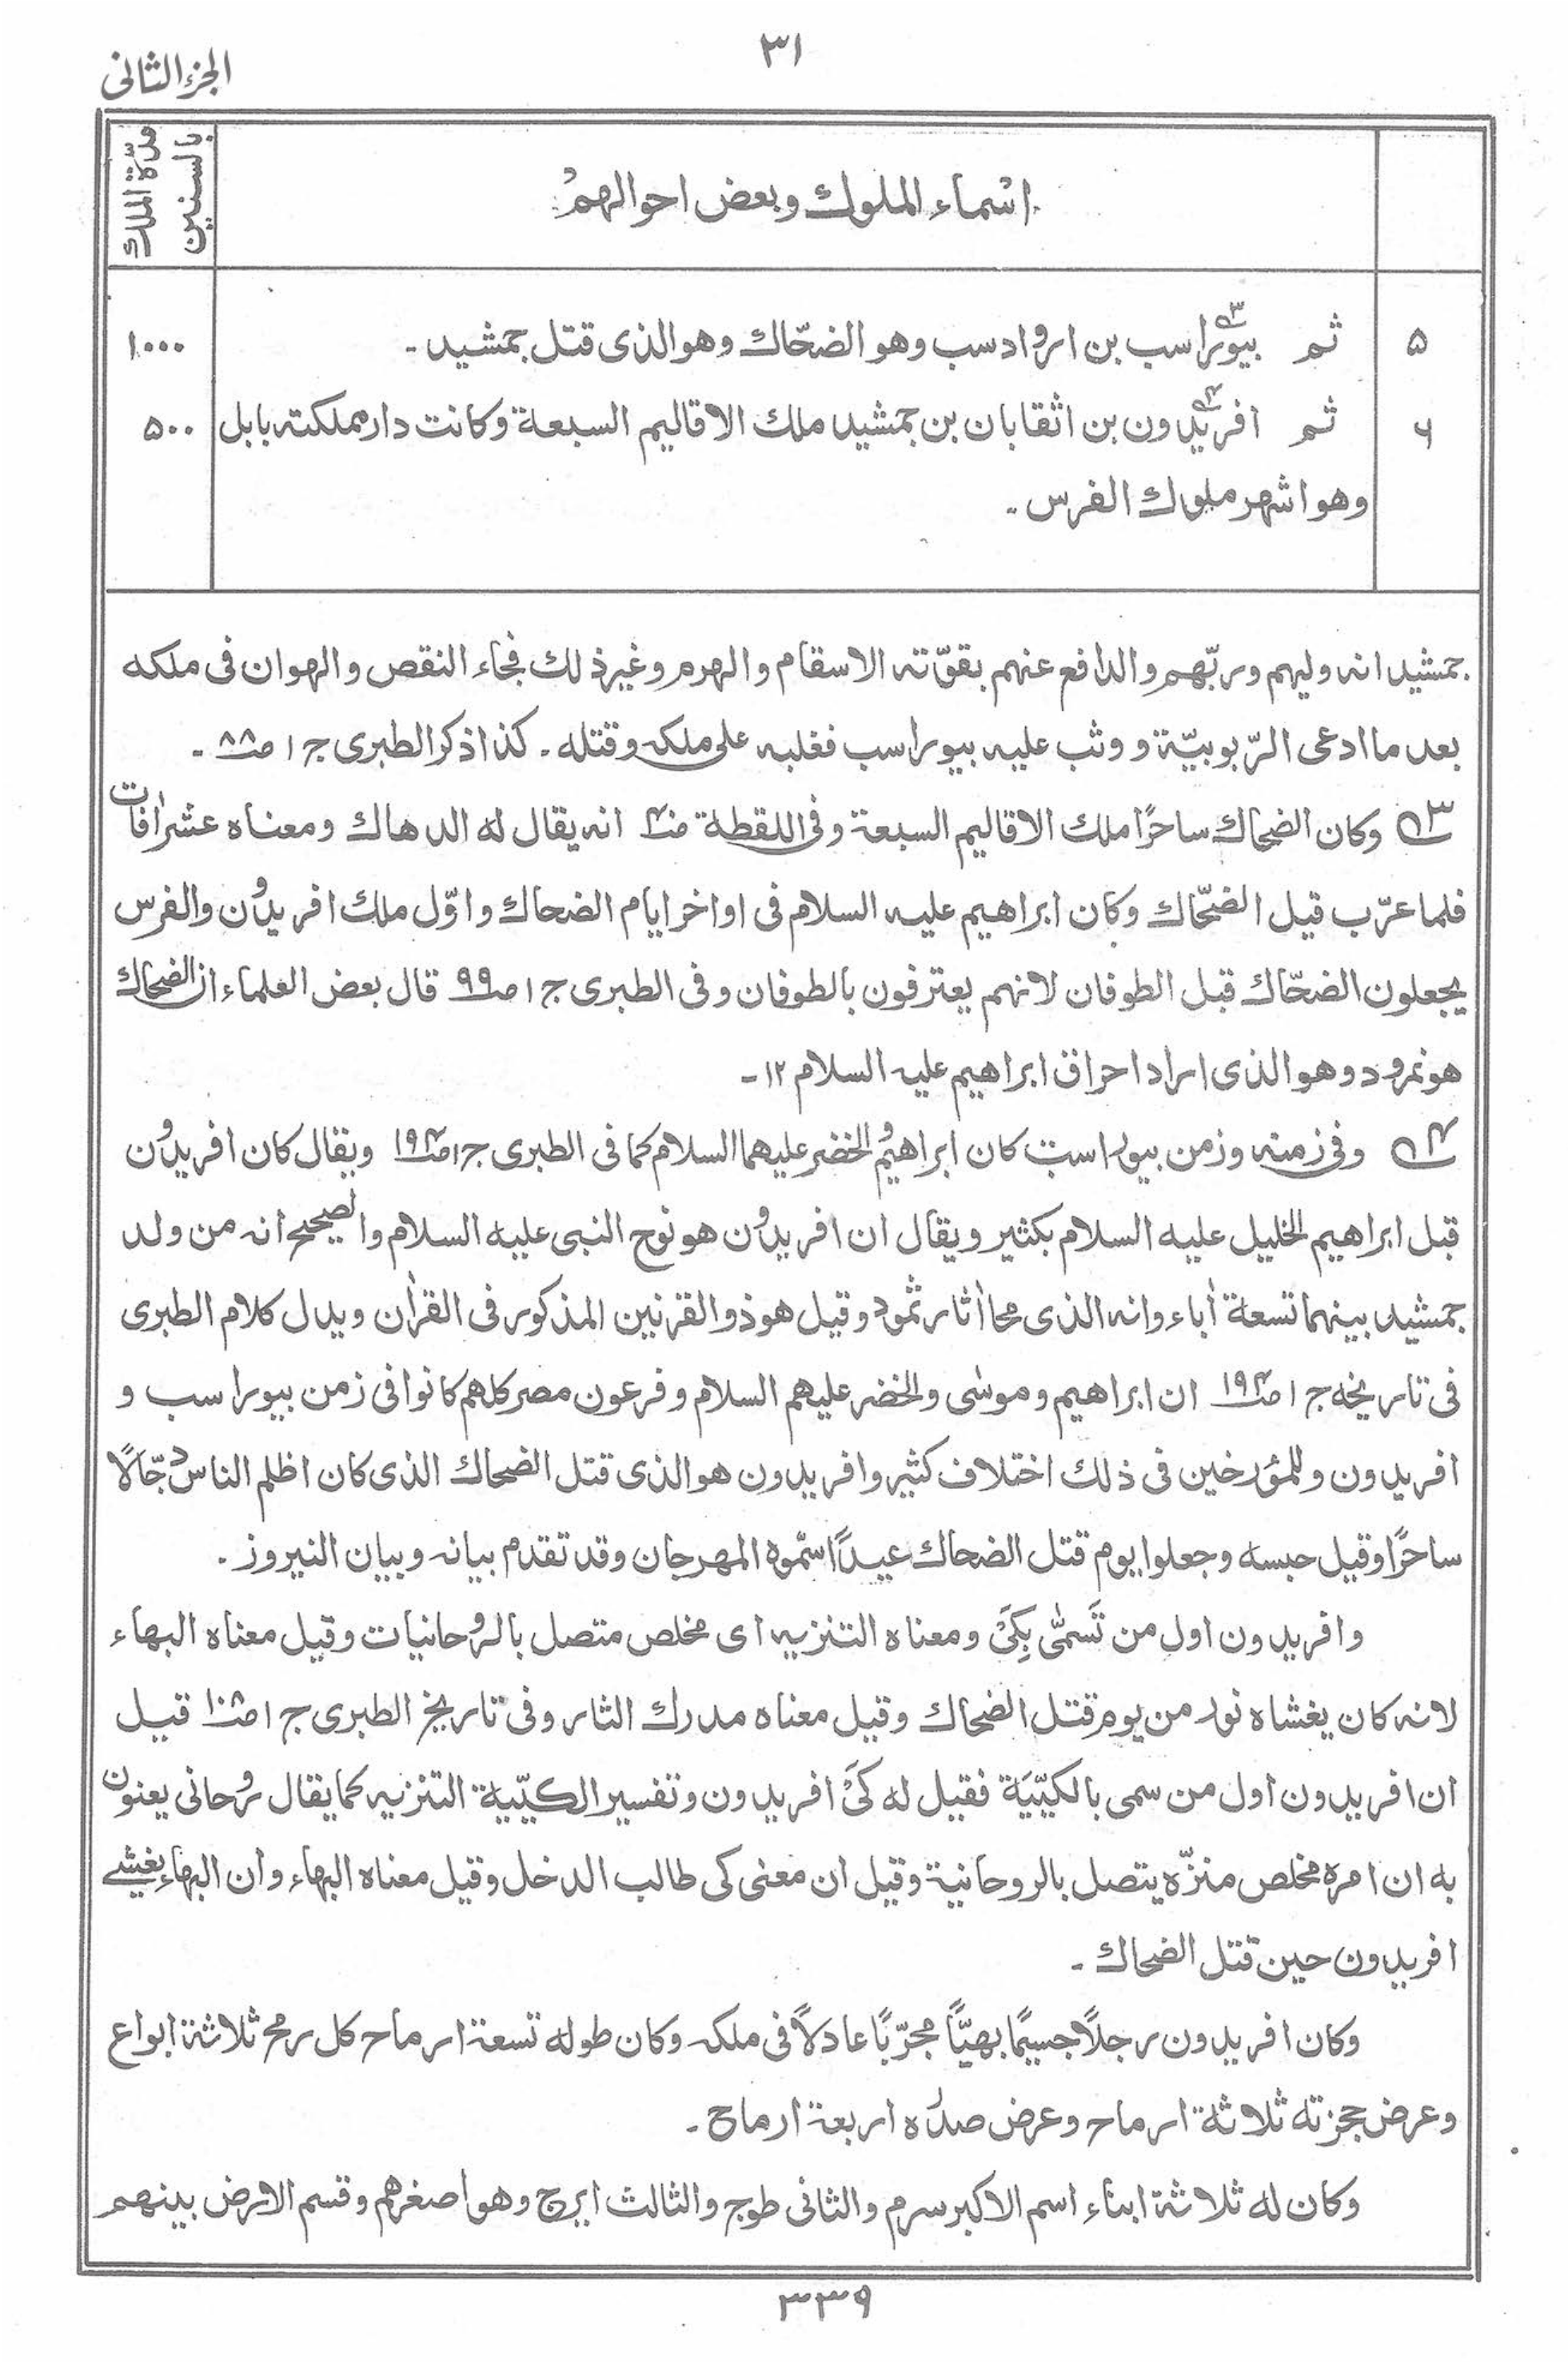 ٣١
الجزء الثانی
اسماء الملوك وبعض احوالهم
مدّة الملك بالسنين
٥ ثم بیوراسب بن ارواد سب وهو الضحّاك وهو الذی قتل جمشید۔ ١٠٠٠
٦ ثم افریدون بن اثقابان بن جمشید ملك الاقالیم السبعة وكانت دار مملكته بابل ٥٠٠
وهو اشهر ملوك الفرس۔
جمشید انه ولیهم وربّهم والدافع عنهم بقوّته الاسقام والهرم وغیر ذلك فجاء النقص والهوان فی ملكه
بعد ما ادعی الرّبوبیّة ووثب علیه بیوراسب فغلبه علی ملكه وقتله۔ كذا ذكر الطبری ج ١ ص ٨٨۔
٣ وكان الضحاك ساحرًا ملك الاقالیم السبعة وفی اللقطة ص انه یقال له الدهاك ومعناه عشر اٰفات
فلما عرّب قیل الضحّاك وكان ابراهیم علیه السلام فی اواخر ایام الضحاك واوّل ملك افریدون والفرس
یجعلون الضحّاك قبل الطوفان لانهم یعترفون بالطوفان وفی الطبری ج ١ ص ٩٩ قال بعض العلماء ان الضحاك
هو نمرود وهو الذی اراد احراق ابراهیم علیه السلام ١٢۔
٤ وفی زمنه وزمن بیوراسب كان ابراهیم والخضر علیهما السلام كما فی الطبری ج ١ ص ١٩٤ ویقال كان افریدون
قبل ابراهیم الخلیل علیه السلام بكثیر ویقال ان افریدون هو نوح النبی علیه السلام والصحیح انه من ولد
جمشید بینهما تسعة اٰباء وانه الذی محا اٰثار ثمود وقیل هو ذو القرنین المذكور فی القراٰن ویدل كلام الطبری
فی تاریخه ج ١ ص ١٩٤ ان ابراهیم وموسٰی والخضر علیهم السلام وفرعون مصر كلهم كانوا فی زمن بیوراسب و
افریدون وللمؤرخین فی ذلك اختلاف كثیر وافریدون هو الذی قتل الضحاك الذی كان اظلم الناس دجّالًا
ساحرًا وقیل حبسه وجعلوا یوم قتل الضحاك عیدًا سمّوه المهرجان وقد تقدم بیانه وبیان النیروز۔
وافریدون اول من تَسَمّٰی بِكَیْ ومعناه التنزیه ای مخلص متصل بالروحانیات وقیل معناه البهاء
لانه كان یغشاه نور من یوم قتل الضحاك وقیل معناه مدرك الثار وفی تاریخ الطبری ج ١ ص قیل
ان افریدون اول من سمی بالكَیّیَة فقیل له كَیْ افریدون وتفسیر الكیّیة التنزیه كما یقال روحانی یعنون
به ان امره مخلص منزّه یتصل بالروحانیة وقیل ان معنی كی طالب الدخل وقیل معناه البهاء وان البهاء یغشی
افریدون حین قتل الضحاك۔
وكان افریدون رجلًا جسیمًا بهیًّا مجرّبًا عادلًا فی ملكه وكان طوله تسعة ارماح كل رمح ثلاثة ابواع
وعرض حجزته ثلاثة ارماح وعرض صدره اربعة ارماح۔
وكان له ثلاثة ابناء اسم الاكبر سرم والثانی طوج والثالث ایرج وهو اصغرهم وقسم الارض بینهم
٣٣٩